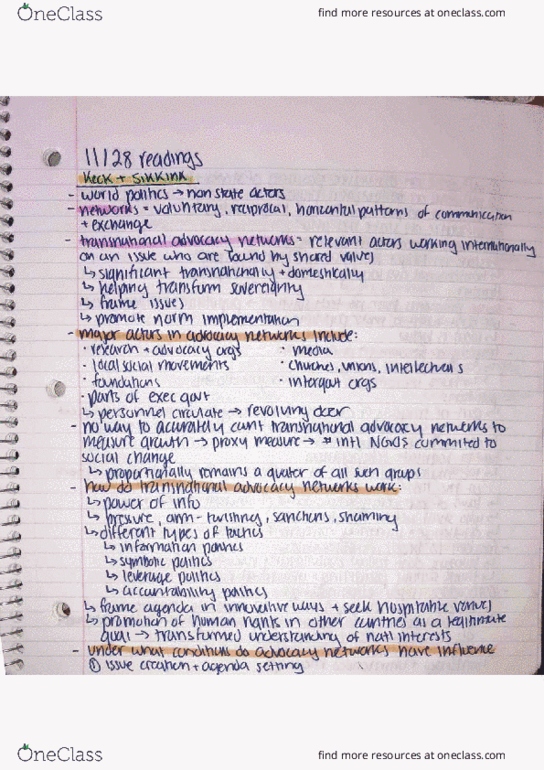 OneClass
find more resources at oneclass.com
11/28 readings
Keck + Sikkink
- world politics → non state actors
- networks = voluntary, reciprocal, horizontal patterns of communication
+ exchange
- transnational advocacy networks = relevant actors working internationally
on an issue who are bound by shared values
↳ significant transnationally + domestically
↳ helping transform sovereignty
↳ frame issues
↳ promote norm implementation
- major actors in advocacy networks include:
· research + advocacy orgs · media
· local social movements · churches, unions, intellectuals
· foundations · intergovt orgs
· parts of exec govt
↳ personnel circulate → revolving door
- no way to accurately count transnational advocacy networks to
measure growth → proxy measure → # intl NGOs committed to
social change
↳ proportionally remains a quarter of all such groups
- how do transnational advocacy networks work:
↳ power of info
↳ pressure, arm-twisting, sanctions, shaming
↳ different types of tactics
↳ information politics
↳ symbolic politics
↳ leverage politics
↳ accountability politics
↳ frame agenda in innovative ways + seek hospitable venues
↳ promotion of human rights in other countries as a legitimate
goal → transformed understanding of natl interests
- under what conditions do advocacy networks have influence
① issue creation + agenda setting
OneClass
find more resources at oneclass.com